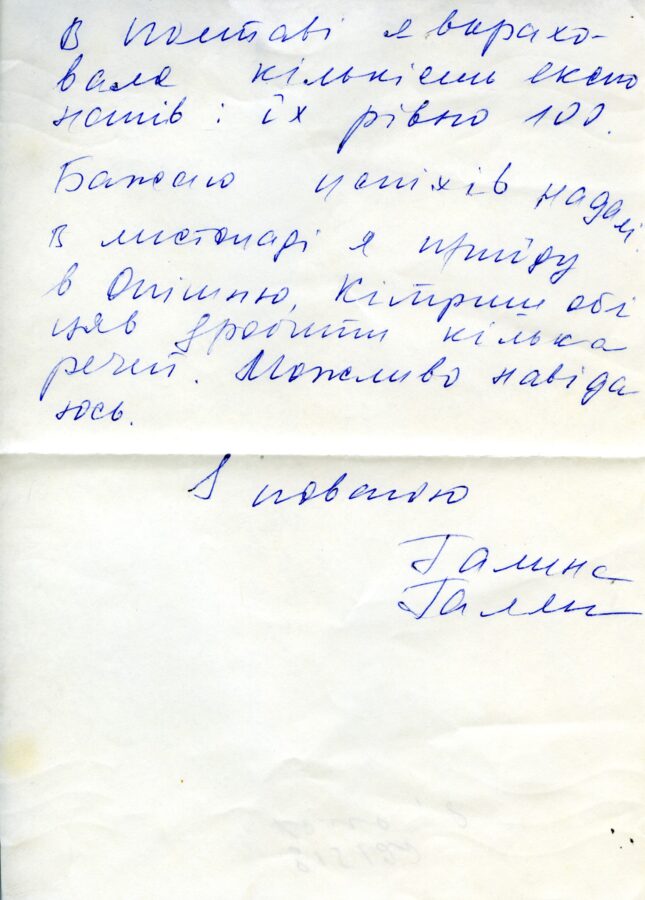 В Полтаві я вирахо-
вала кількість експо
натів: їх рівно 100.
Бажаю успіхів надалі.
В листопаді я приїду
в Опішню,
обі
цяв зробити кілька
речей. Можливо навіда
юсь.
З повагою
Галина